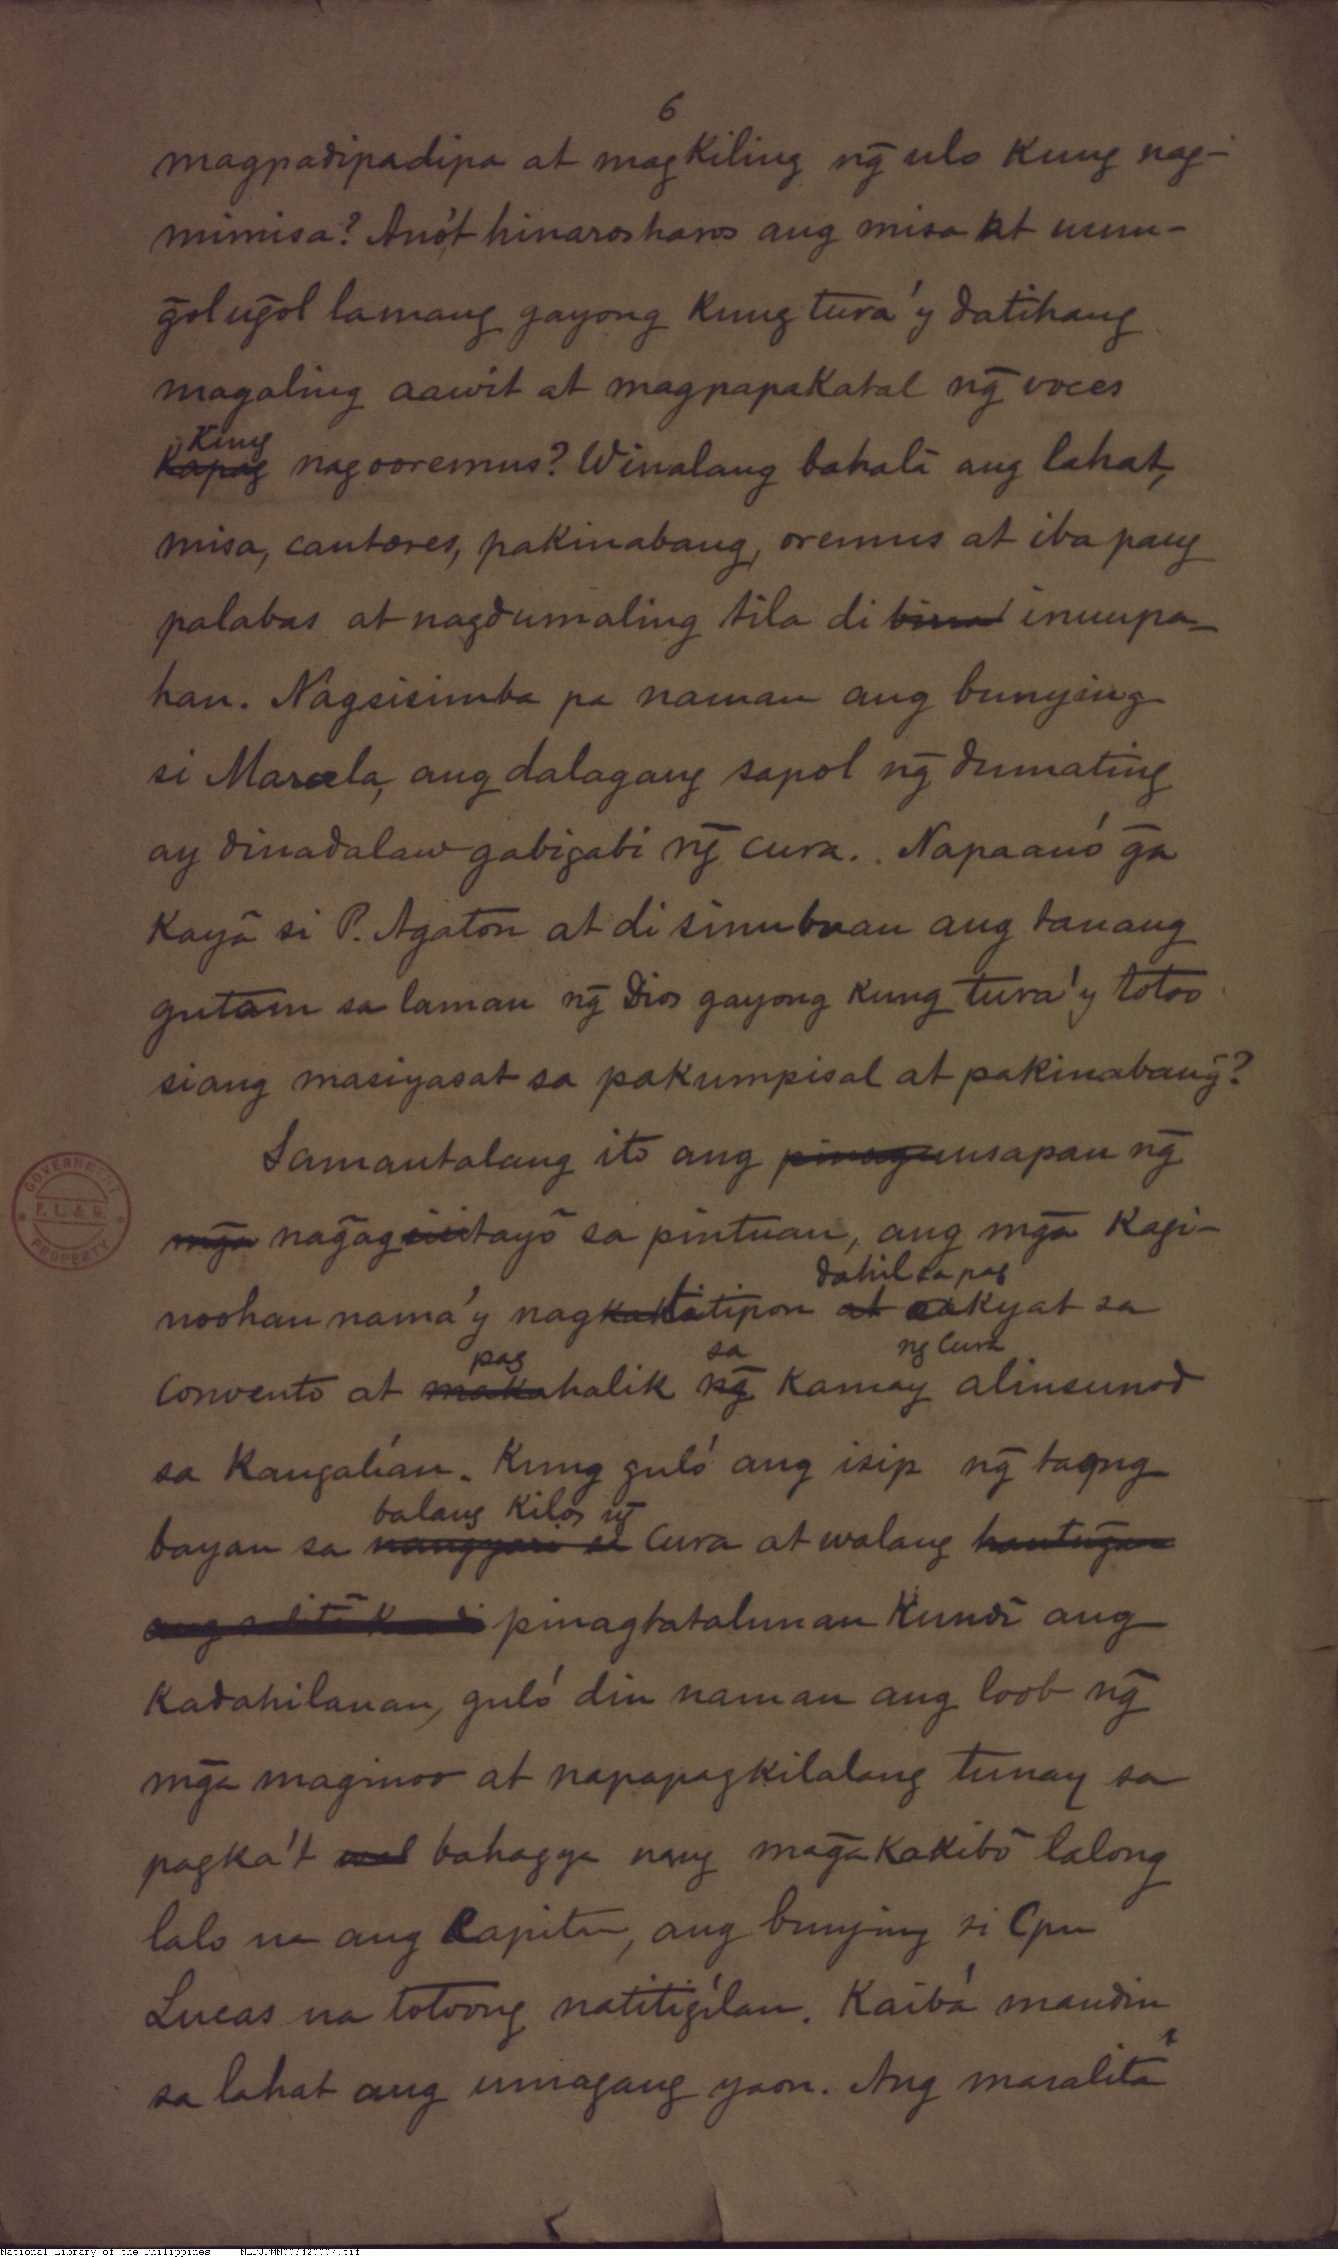 6
magpadipadipa at magkiling ng̃ ulo kung nag-
mimisa? Anó't hinarosharos ang misa at umu-
g̃olug̃ol lamang gayong kung tura'y datihang
magaling aawit at magpapakatal ng̃ voces
kung
kapag nagooremus? Winalang bahalà ang lahat,
misa, cantores, pakinabang, oremus at iba pang
palabas at nagdumaling tila di inuupa-
han. Nagsisimba pa naman ang bunying
si Marcela, ang dalagang sapol ng̃ dumating
ay dinadalaw gabigabi ng̃ cura.. Napaanó g̃a
kayã si P. Agaton at di sinubuan ang tanang
gutom sa laman ng̃ Dios gayong kung tura'y totoo
siang masiyasat sa pakumpisal at pakinabang?
Samantalang ito ang pinaguusapan ng̃
mg̃a nag̃agsisitayõ sa pintuan, ang mg̃a kagi-
dahil sa pag
noohan nama'y nagkakatitipon at aakyat sa
pag sa ng Cura
convento at makahalik ng̃ kamay alinsunod
sa kaugalían. Kung guló ang isip ng̃ taong
balang kilos ng̃
bayan sa nangyari si Cura at walang hantung̃an
ang salitã kundi pinagtatalunan kundĩ ang
kadahilanan, guló din naman ang loob ng̃
mg̃a maginoo at napapagkilalang tunay sa
pagka't bahagya nang mag̃akakibõ lalong
lalo na ang Capitan, ang bunying si Cpn
Lucas na totoong natitigílan. Kaibá mandin
sa lahat ang umagang yaon. Ang maralitã